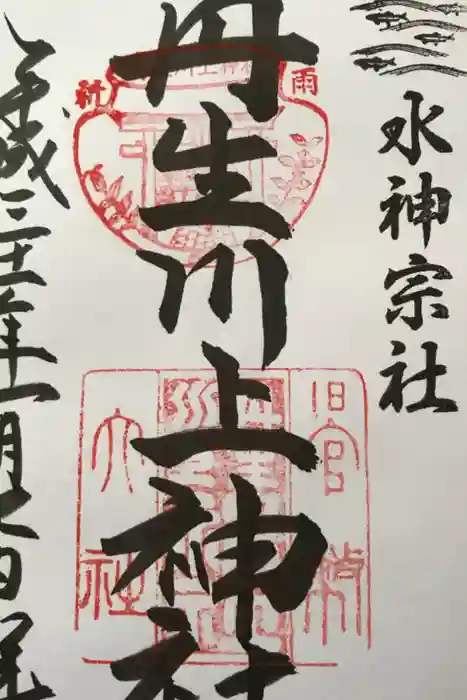 水神宗社
丹生川上神社
平成三十一年一月七日
雨
社
旧官幣
大社